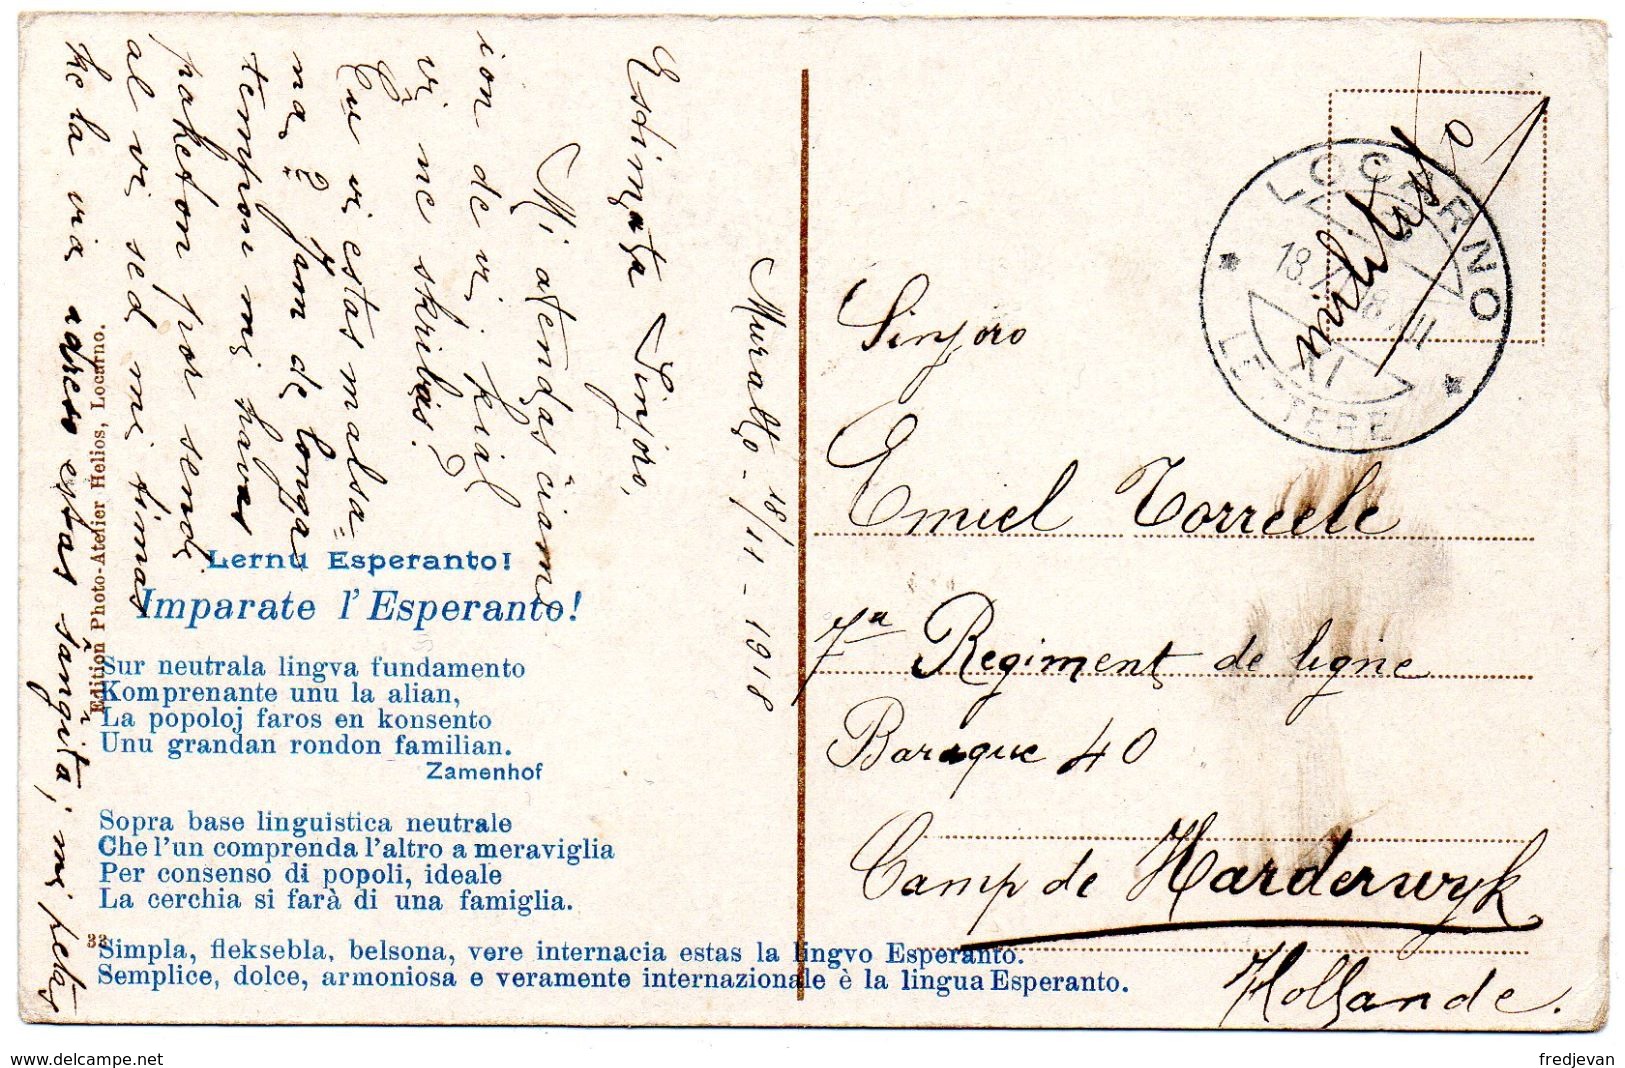 Muralto - 18/11 - 1918
Estimata Sinjoro,
Mi atendas ĉiam
ion de vi, kial
vi ne skribas?
Ĉu vi estas malsa=
na? Jam de longa
tempon mi havas
paketon por sendi
al vi sed mi timas
ke la via adreso estas ŝanĝita; mi petas
Edition Photo-Atelier Helios, Locarno.
Lernu Esperanto!
Imparate l'Esperanto!
Sur neutrala lingva fundamento
Komprenante unu la alian,
La popoloj faros en konsento
Unu grandan rondon familian.
Zamenhof
Sopra base linguistica neutrale
Che l'un comprenda l'altro a meraviglia
Per consenso di popoli, ideale
La cerchia si farà di una famiglia.
32
Simpla, fleksebla, belsona, vere internacia estas la lingvo Esperanto.
Semplice, dolce, armoniosa e veramente internazionale è la lingua Esperanto.
LOCARNO
LETTERE
XI
Sinjoro
Emiel Torreele
7a Regiment de ligne
Baraque 40
Camp de Harderwyk
Hollande.
fredjevan
delcampe.net